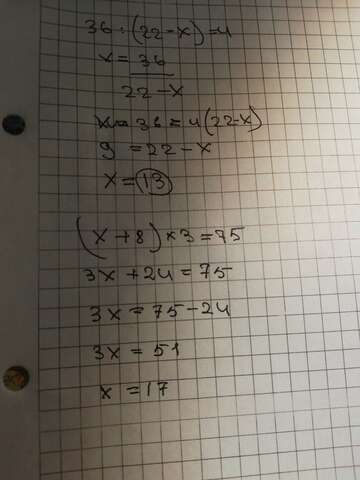 36 : (22-x)=4
x = 36
22-x
36 = 4(22-x)
9 = 22-x
x = 13
(x+8)×3=75
3x+24=75
3x=75-24
3x = 51
x = 17